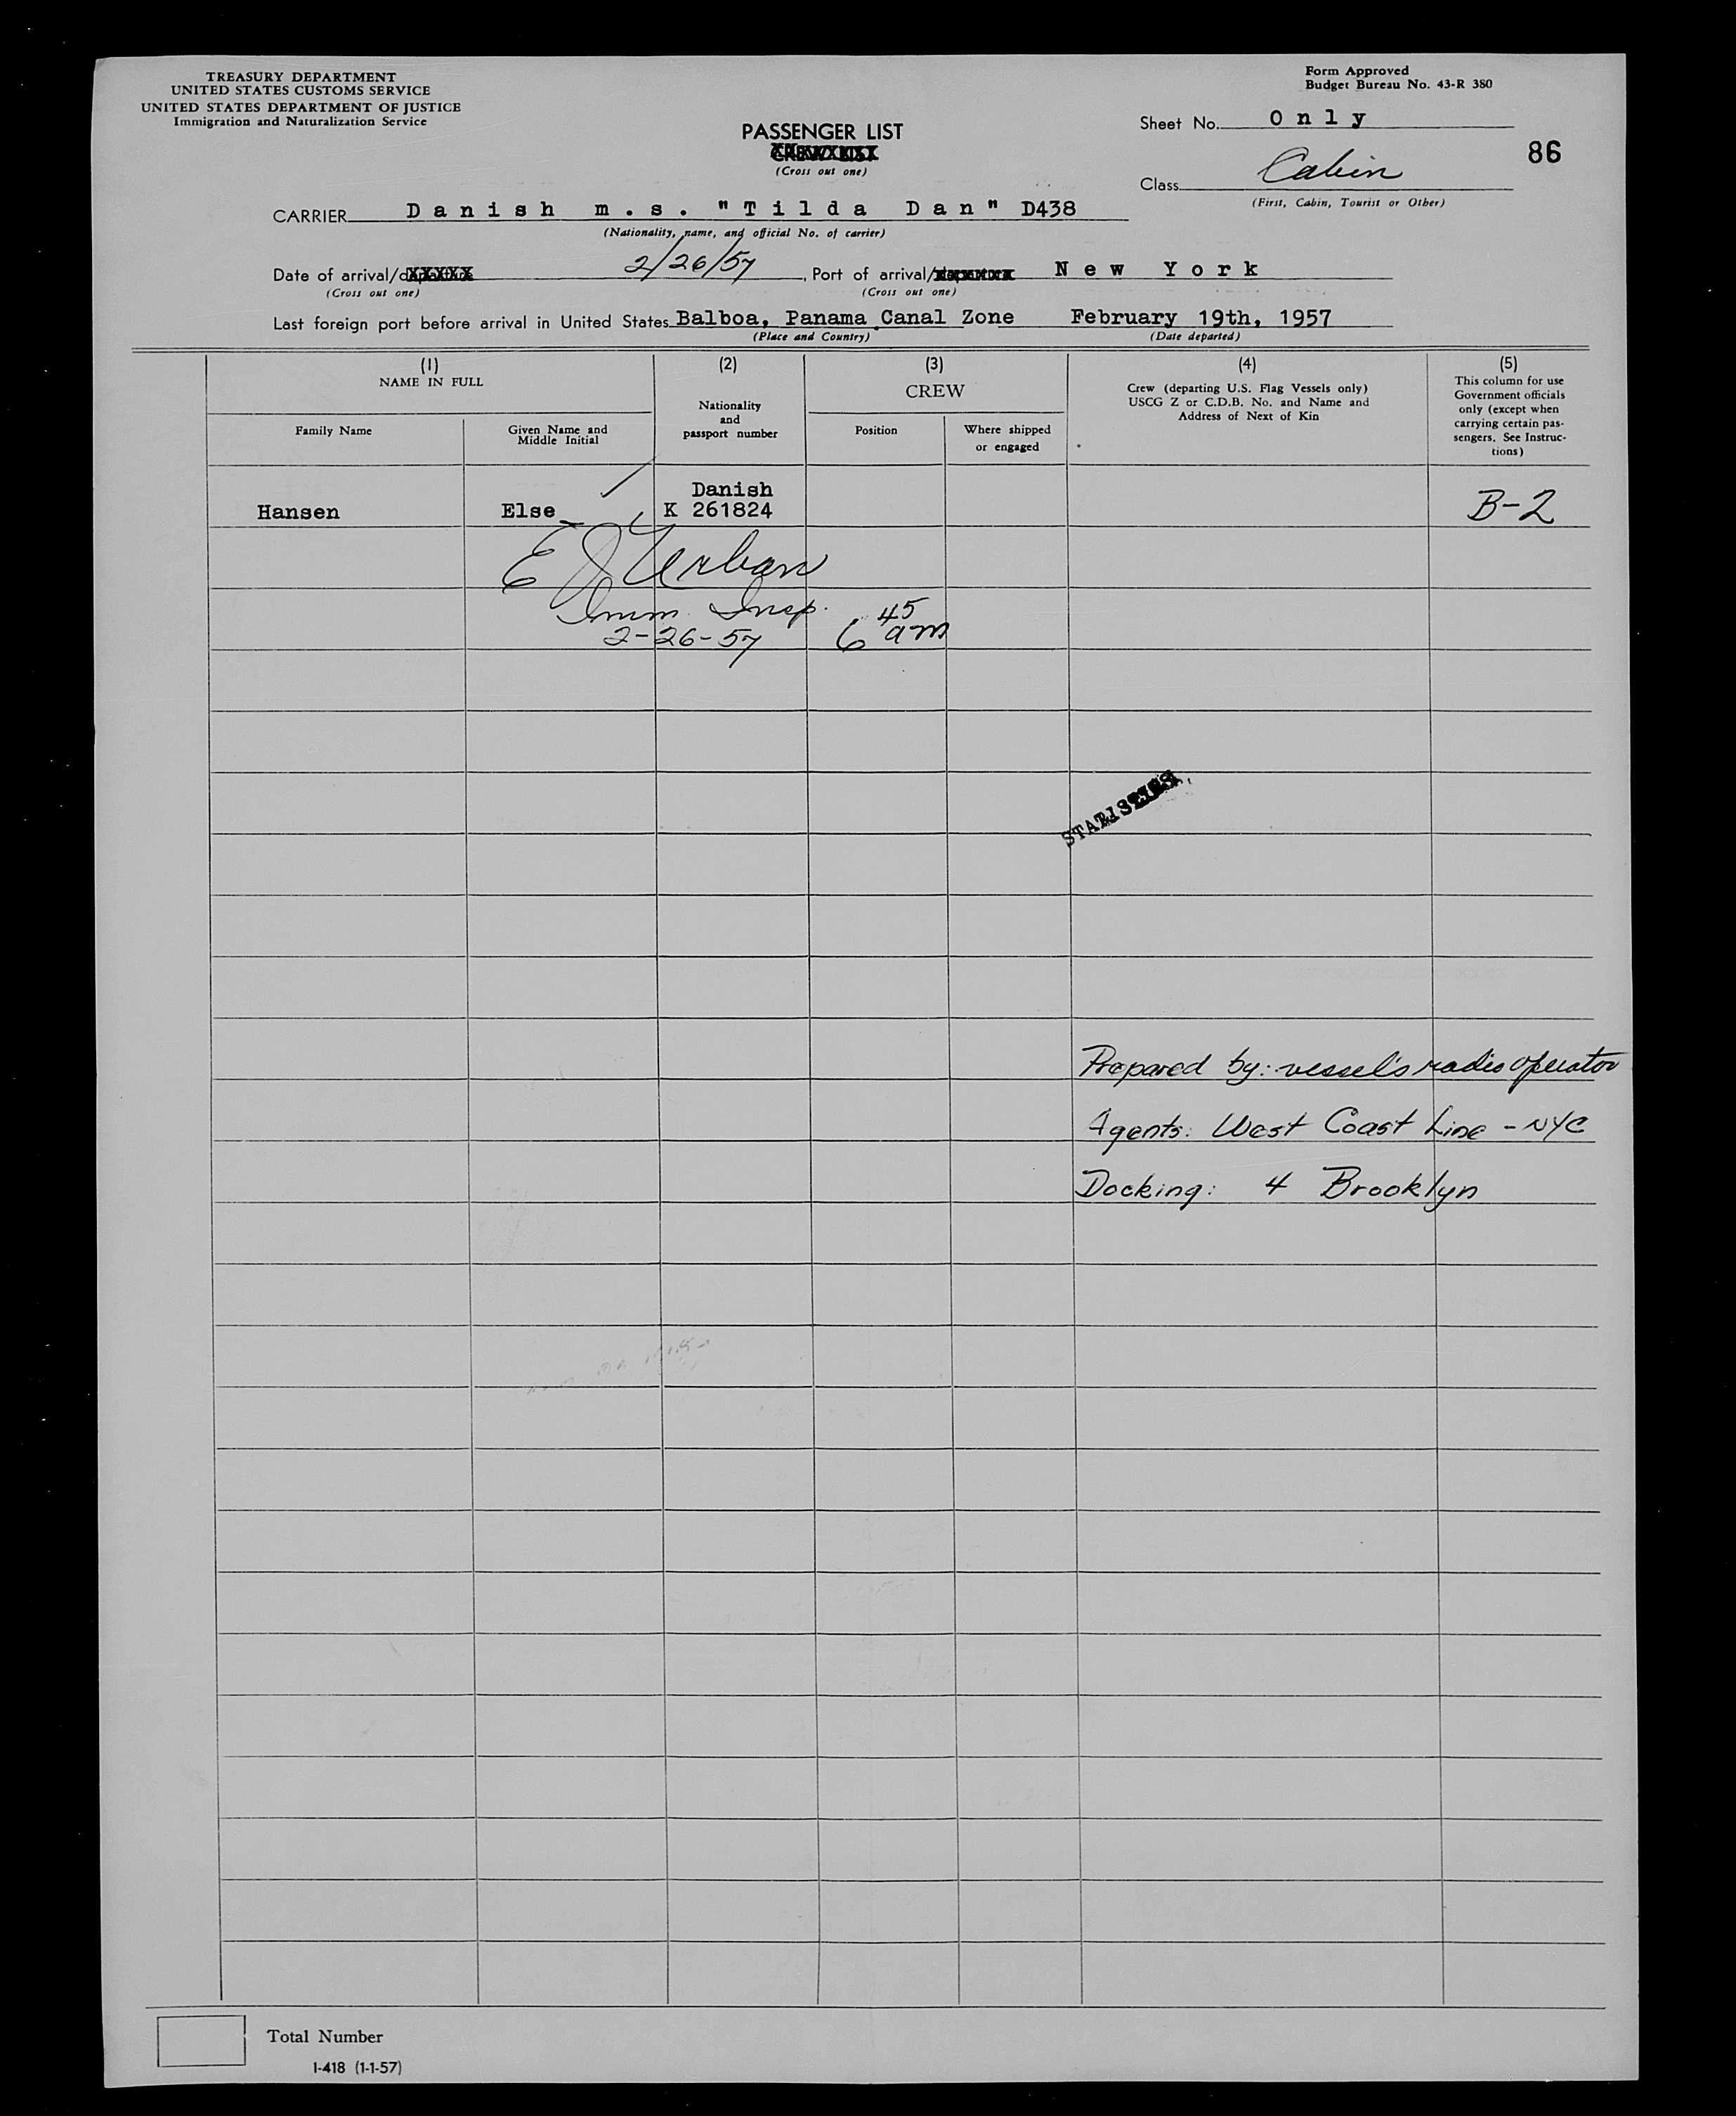 TREASURY DEPARTMENT
UNITED STATES CUSTOMS SERVICE
UNITED STATES DEPARTMENT OF JUSTICE
Immigration and Naturalization Service
Form Approved
Budget Bureau No. 43-R 380
PASSENGER LIST
CREW LIST
(Cross out one)
Sheet No. Only
86
Class Cabin
(First, Cabin, Tourist or Other)
CARRIER Danish m.s. "Tilda Dan" D438
(Nationality, name, and official No. of carrier)
Date of arrival/departure 2/26/57, Port of arrival/departure New York
(Cross out one) (Cross out one)
Last foreign port before arrival in United States Balboa, Panama Canal Zone February 19th, 1957
(Place and Country) (Date departed)
(1) (2) (3) (4) (5)
NAME IN FULL
Family Name
Given Name and Middle Initial
Nationality and passport number
CREW
Position
Where shipped or engaged
Crew (departing U.S. Flag Vessels only)
USCG Z or C.D.B. No. and Name and
Address of Next of Kin
This column for use
Government officials
only (except when
carrying certain pas-
sengers. See Instruc-
tions)
Danish
Hansen Else K 261824 B-2
E J Urban
Imm. Insp.
2-26-57 6 45 am
Prepared by: vessel's radio operator
Agents: West Coast Line - NYC
Docking: 4 Brooklyn
Total Number
I-418 (1-1-57)